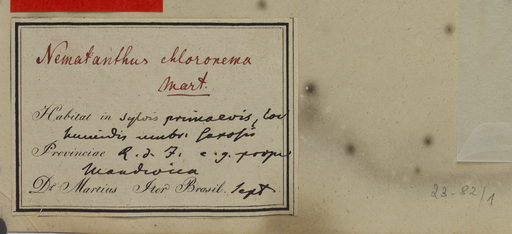 Nematanthus chloronema
Mart.
Habitat in sylvis primaevis, loc
humidis umbr. saxosis
Provinciae R. d. J. e. g. prope
Mandiocca
De Martius Iter Brasil. Sept
23-82/1